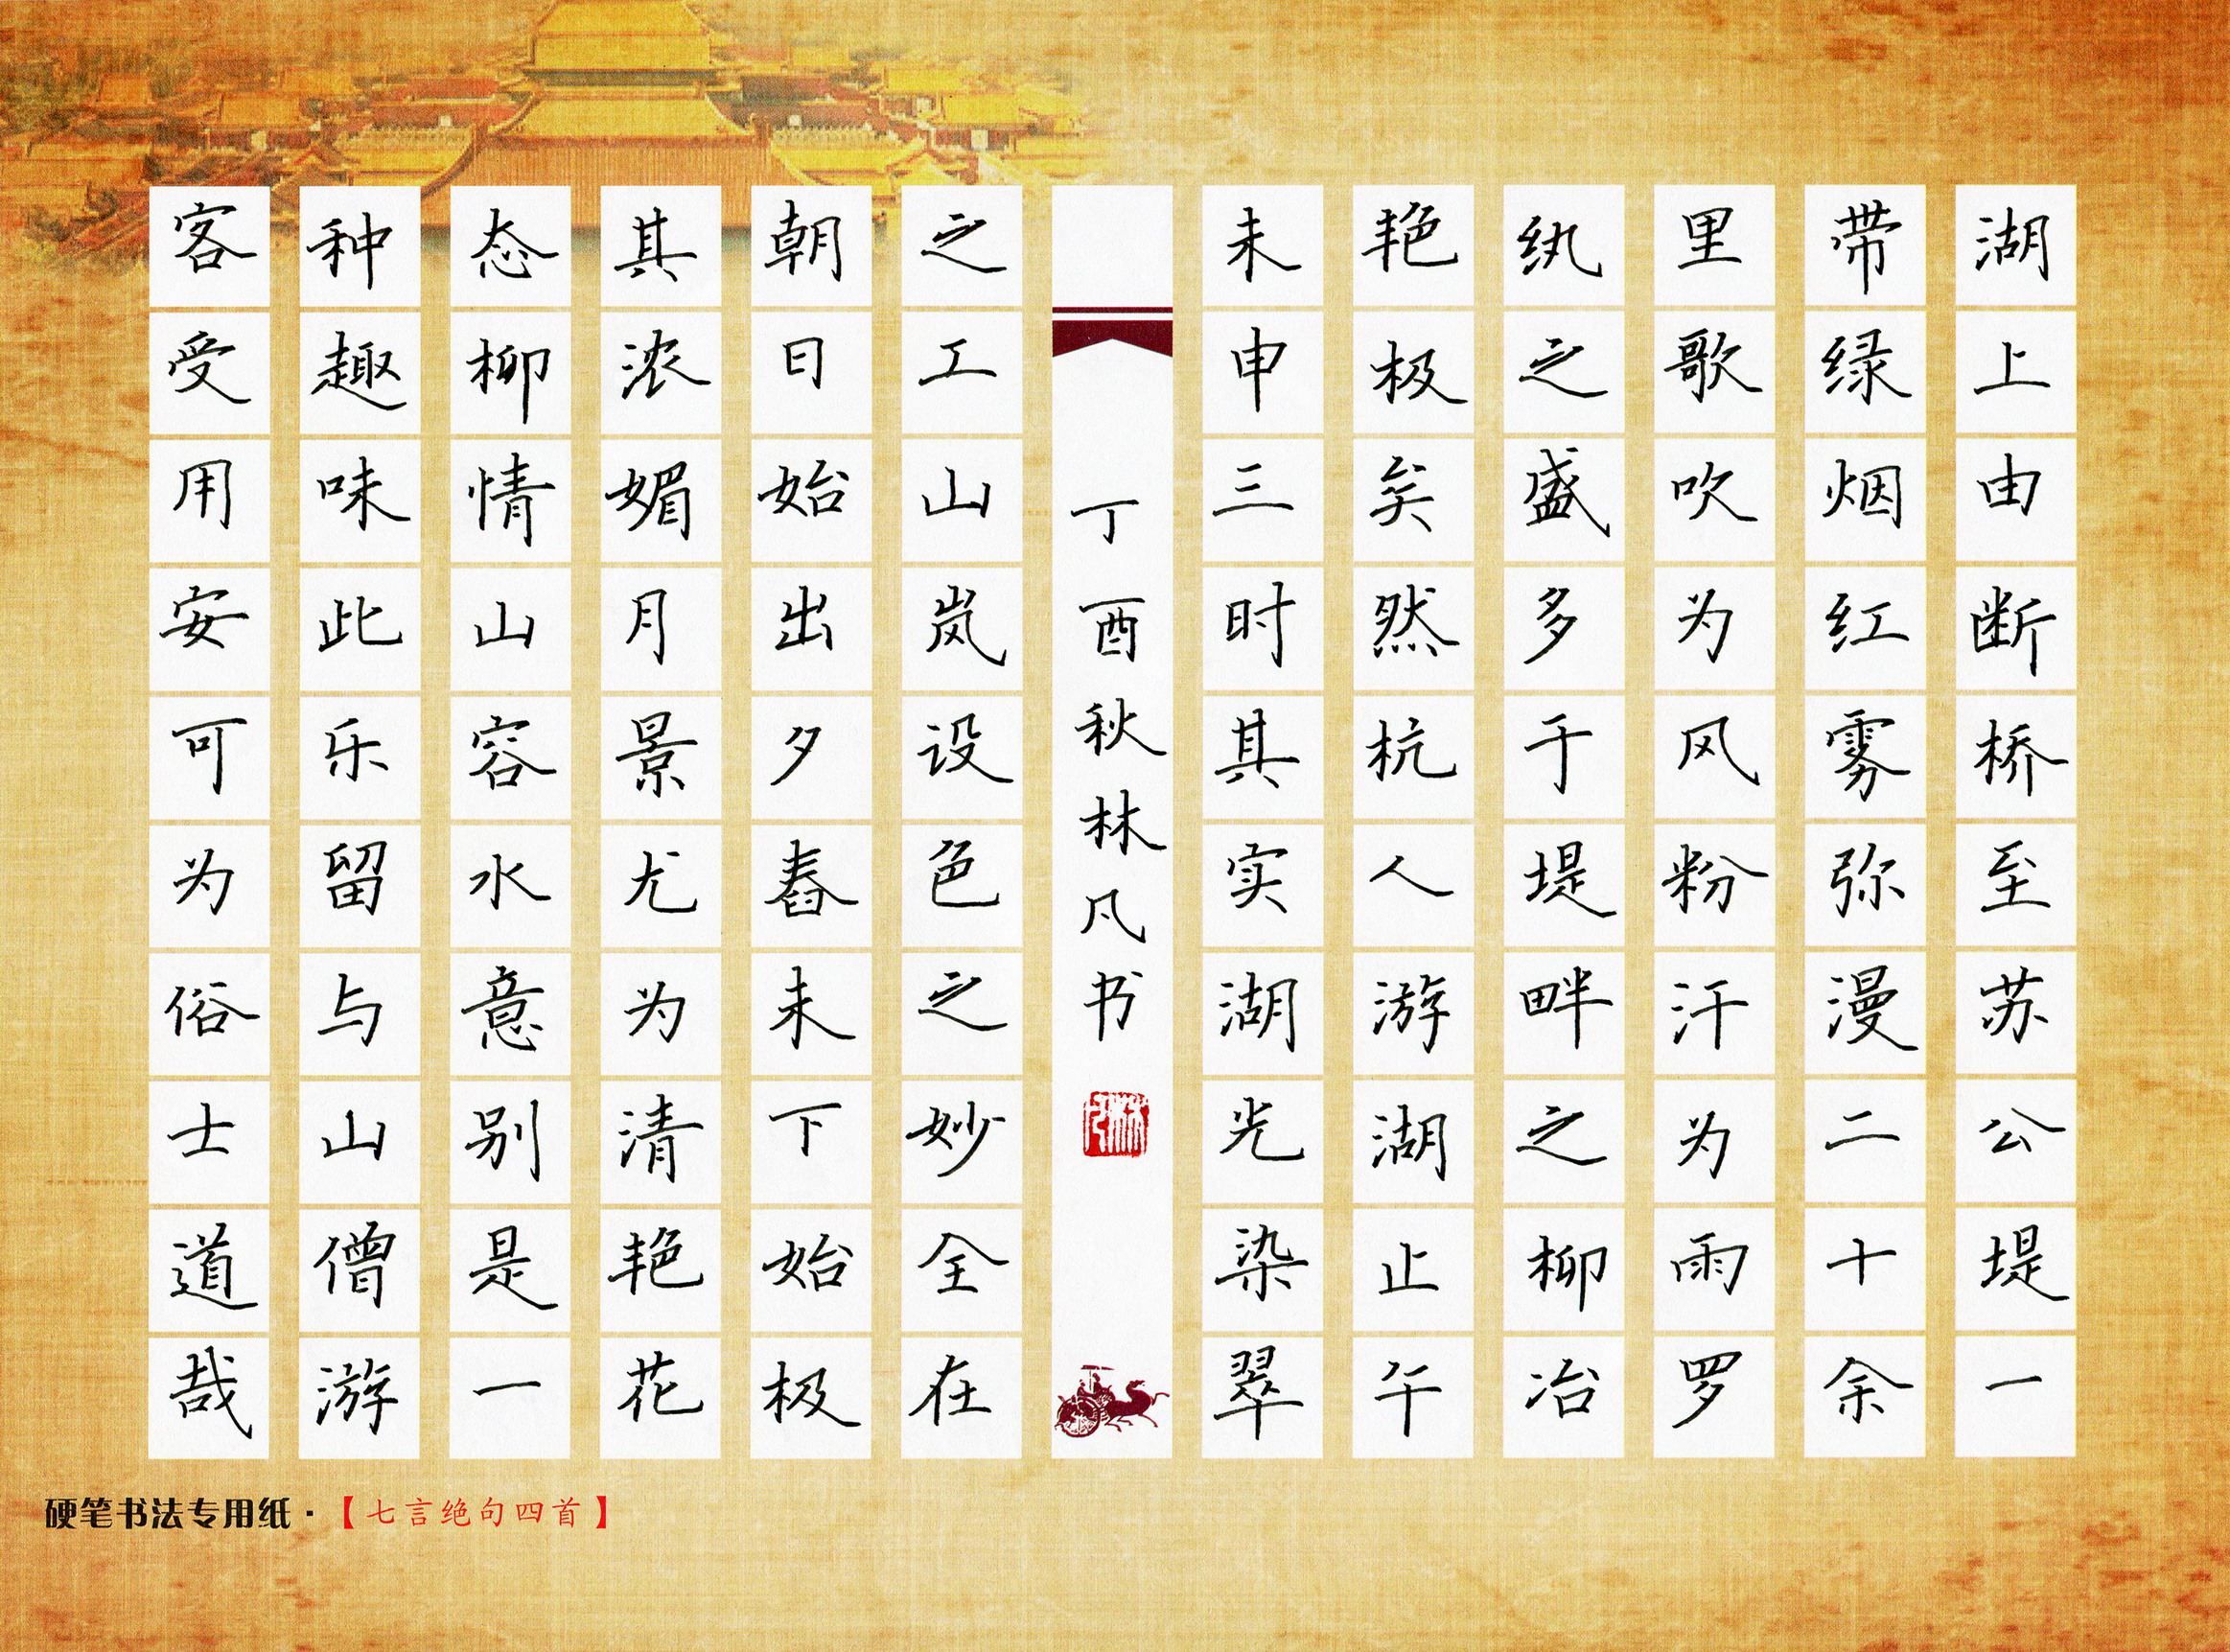 湖上由断桥至苏公堤一
带绿烟红雾弥漫二十余
里歌吹为风粉汗为雨罗
纨之盛多于堤畔之柳冶
艳极矣然杭人游湖止午
未申三时其实湖光染翠
丁酉秋林凡书
林凡
之工山岚设色之妙全在
朝日始出夕舂未下始极
其浓媚月景尤为清艳花
态柳情山容水意别是一
种趣味此乐留与山僧游
客受用安可为俗士道哉
硬笔书法专用纸·【七言绝句四首】